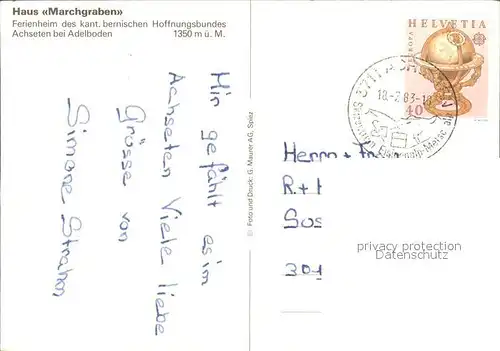 Haus «Marchgraben»
Ferienheim des kant. bernischen Hoffnungsbundes
Achseten bei Adelboden 1350 m ü. M.
Mir gefählt es im
Achseten Viele liebe
Grösse von
Simone
© Foto und Druck: G. Maurer AG, Spiez
HELVETIA
EUROPA
40
3711
18.-2.83-18
Herrn + Fr
R+I
Sus
301
privacy protection
Datenschutz